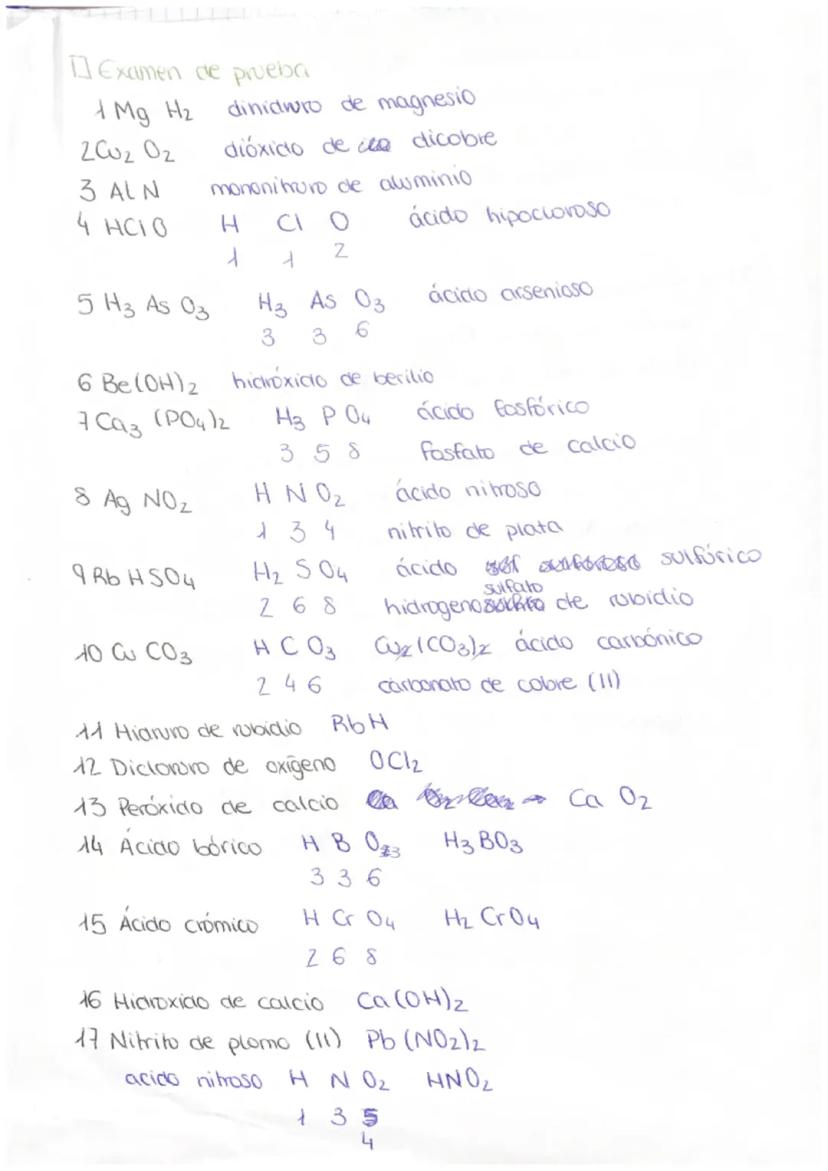 Examen de prueba
1 Mg H2 dihidruro de magnesio
2 Cu2 O2 dióxido de dicobre
3 AlN mononitruro de aluminio
4 HClO H Cl O ácido hipocloroso
1 1 2
5 H3 As O3 H3 As O3 ácido arsenioso
3 3 6
6 Be(OH)2 hidróxido de berilio
7 Ca3 (PO4)2 H3 P O4 ácido fosfórico
3 5 8 fosfato de calcio
8 Ag NO2 H N O2 ácido nitroso
1 3 4 nitrito de plata
9 Rb HSO4 H2 S O4 ácido sulfúrico
2 6 8 hidrogenosulfato de rubidio
10 Cu CO3 H C O3 Cu2(CO3)2 ácido carbónico
2 4 6 carbonato de cobre (II)
11 Hidruro de rubidio RbH
12 Dicloruro de oxígeno OCl2
13 Peróxido de calcio → Ca O2
14 Ácido bórico H B O3 H3 BO3
3 3 6
15 Ácido crómico H Cr O4 H2 CrO4
2 6 8
16 Hidroxido de calcio Ca(OH)2
17 Nitrito de plomo (II) Pb (NO2)2
acido nitroso H N O2 HNO2
1 3 5
4